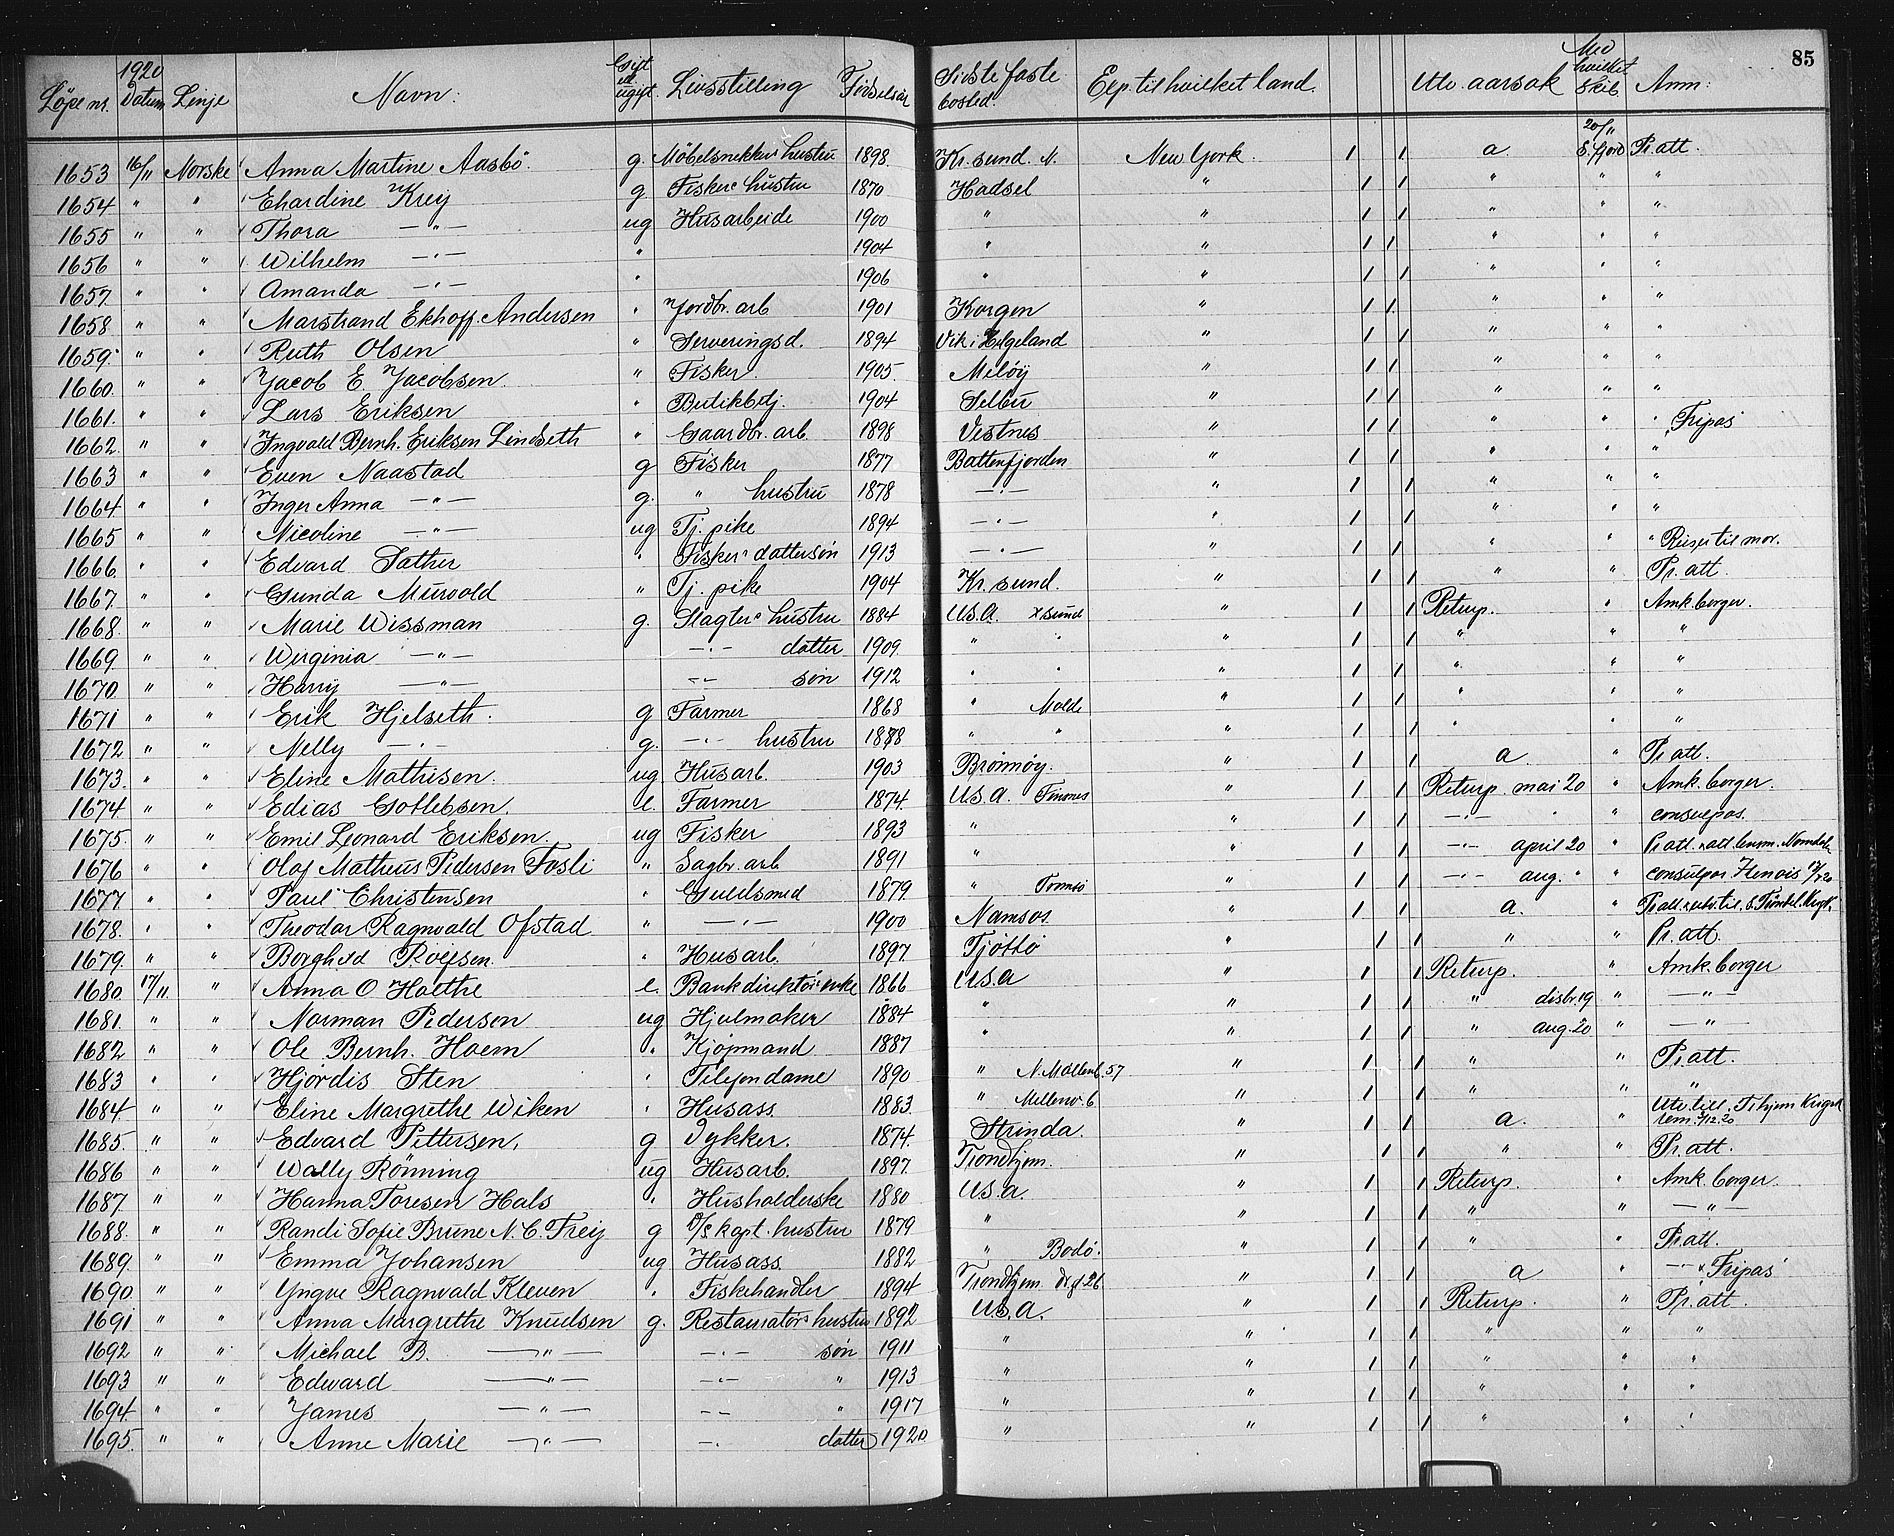 85
Løpe nr. 1920 Datum Linje Navn: Gift el. ugift. Livsstilling Fødselsår Sidste faste bosted. Exp. til hvilket land. Utv. aarsak Med hvilket Skib. Anm:
1653 16/11 Norske Anna Martine Aasbö. g Möbelsnekkers hustru 1898. Kr.sund. N. New York. 1 1 a. 20/11 S.fjord Pr. att.
1654 " " Ehardine Krey g Fiskers hustru 1870 Hadsel " 1 1 " " "
1655 " " Thora —"— ug Husarbeide 1900 " " 1 1 " " "
1656 " " Wilhelm —"— " 1904 " " 1 1 " " "
1657. " " Amanda —"— " 1906 " " 1 1 " " "
1658 " " Marstrand Ekhoff. Andersen " Jordbr. arb 1901 Korgen " 1 1 " " "
1659. " " Ruth Olsen " Serveringsd. 1894 Vik i Helgeland " 1 1 " " "
1660. " " Jacob E. Jacobsen. " Fisker 1905. Melöy " 1 1 " " "
1661. " " Lars Eriksen " Butikbetj. 1904 Selbu " 1 1 " " "
1662. " " Ingvald Bernh. Eriksen Lindseth " Gaardbr. arb. 1898 Vestnes " 1 1 " " " Fripas
1663 " " Even Naastad g Fisker 1877 Battenfjorden " 1 1 " " "
1664. " " Inger Anna —"— g. " hustru 1878 —"— " 1 1 " " "
1665 " " Nicoline —"— ug Tj. pike 1894 —"— " 1 1 " " "
1666. " " Edvard Sather " Fiskers dattersön 1913 —"— " 1 1 " " " Reiser til mor.
1667. " " Gunda Murvold " Tj. pike 1904 Kr. sund. " 1 1 " " Pr. att.
1668. " " Marie Wissman g. Slagters hustru 1884 U.S.A. Xsund " 1 1 Returp. " Amk. borger.
1669. " " Virginia —"— —"— datter 1909. " " " 1 1 " " "
1670. " " Harry —"— —"— sön 1912 " " " 1 1 " " "
1671 " " Erik Hjelseth. g Farmer 1868 " Molde " 1 1 " " "
1672 " " Nelly —"— g. —"— hustru 1888 " " " 1 1 " " "
1673. " " Eline Mathisen. ug Husarb. 1903 Brønnøy. " 1 1 a. " Pr. att.
1674 " " Edias Gotlebsen. e. Farmer 1874. U.S.A. " 1 1 Returp. mai 20 " Amk. borger.
1675. " " Emil Leonard Eriksen. ug Fisker 1893 " " 1 1 —"— " " consulpas.
1676 " " Olaf Matheus Pedersen Fosli " Sagbr. arb 1891 " " 1 1 —"— april 20 "
1677 " " Paul Christensen " Guldsmed 1879. " Tromsö " 1 1 —"— aug. "
1678. " " Theodor Ragnvald Ofstad " —"— 1900 Namsos. " 1 1 a. "
1679. " " Borghild Rolfsen. " Husarb. 1897. Tjøttö " 1 1 " " Pr. att.
1680. 17/11 " Anna O Holthe e. Bankdirektörs enke 1866 U.S.A " 1 1 Returp. " Amk. borger
1681. " " Norman Pederson ug Hjulmaker 1884 " " 1 1 " " —"—
1682 " " Ole Bernh. Hoem " Kjøpmand 1887 " " 1 1 " aug. 20 " —"—
1683 " " Hjördis Sten " Telefondame 1890 " N. Möllenb. 57 " 1 1 " " Pr. att.
1684. " " Eline Margrethe Wiken " Husass. 1883. " Mellenv. 6 " 1 1 " " "
1685. " " Edvard Pettersen. g Dykker. 1874. Strinda. " 1 1 a. "
1686 " " Wally Rönning ug Husarb. 1897. Trondhjem. " 1 1 " " Pr. att.
1687. " " Hanna Toresen Hals " Husholderske 1880 U.S.A. " 1 1 Returp. " Amk. borger.
1688. " " Randi Sofie Brune N. C. Frey g D/S kapt. hustru 1879 " " 1 1 " " —"—
1689. " " Emma Johansen ug Husass. 1882 " Bodö. " 1 1 " " Pr. att.
1690. " " Yngve Ragnvald Kleven " Fiskehandler 1894 Trondhjem. " 1 1 a " —"— Fripas
1691 " " Anna Margrethe Knudsen g. Restauratörs hustru 1892 U.S.A. " 1 1 Returp. " Pr. att.
1692 " " Michael B. —"— —"— sön 1911 " " 1 1 " " "
1693 " " Edward —"— —"— " 1913 " " 1 1 " " "
1694. " " James —"— —"— " 1917 " " 1 1 " " "
1695. " " Anne Marie —"— —"— datter 1920 " " 1 1 " " "